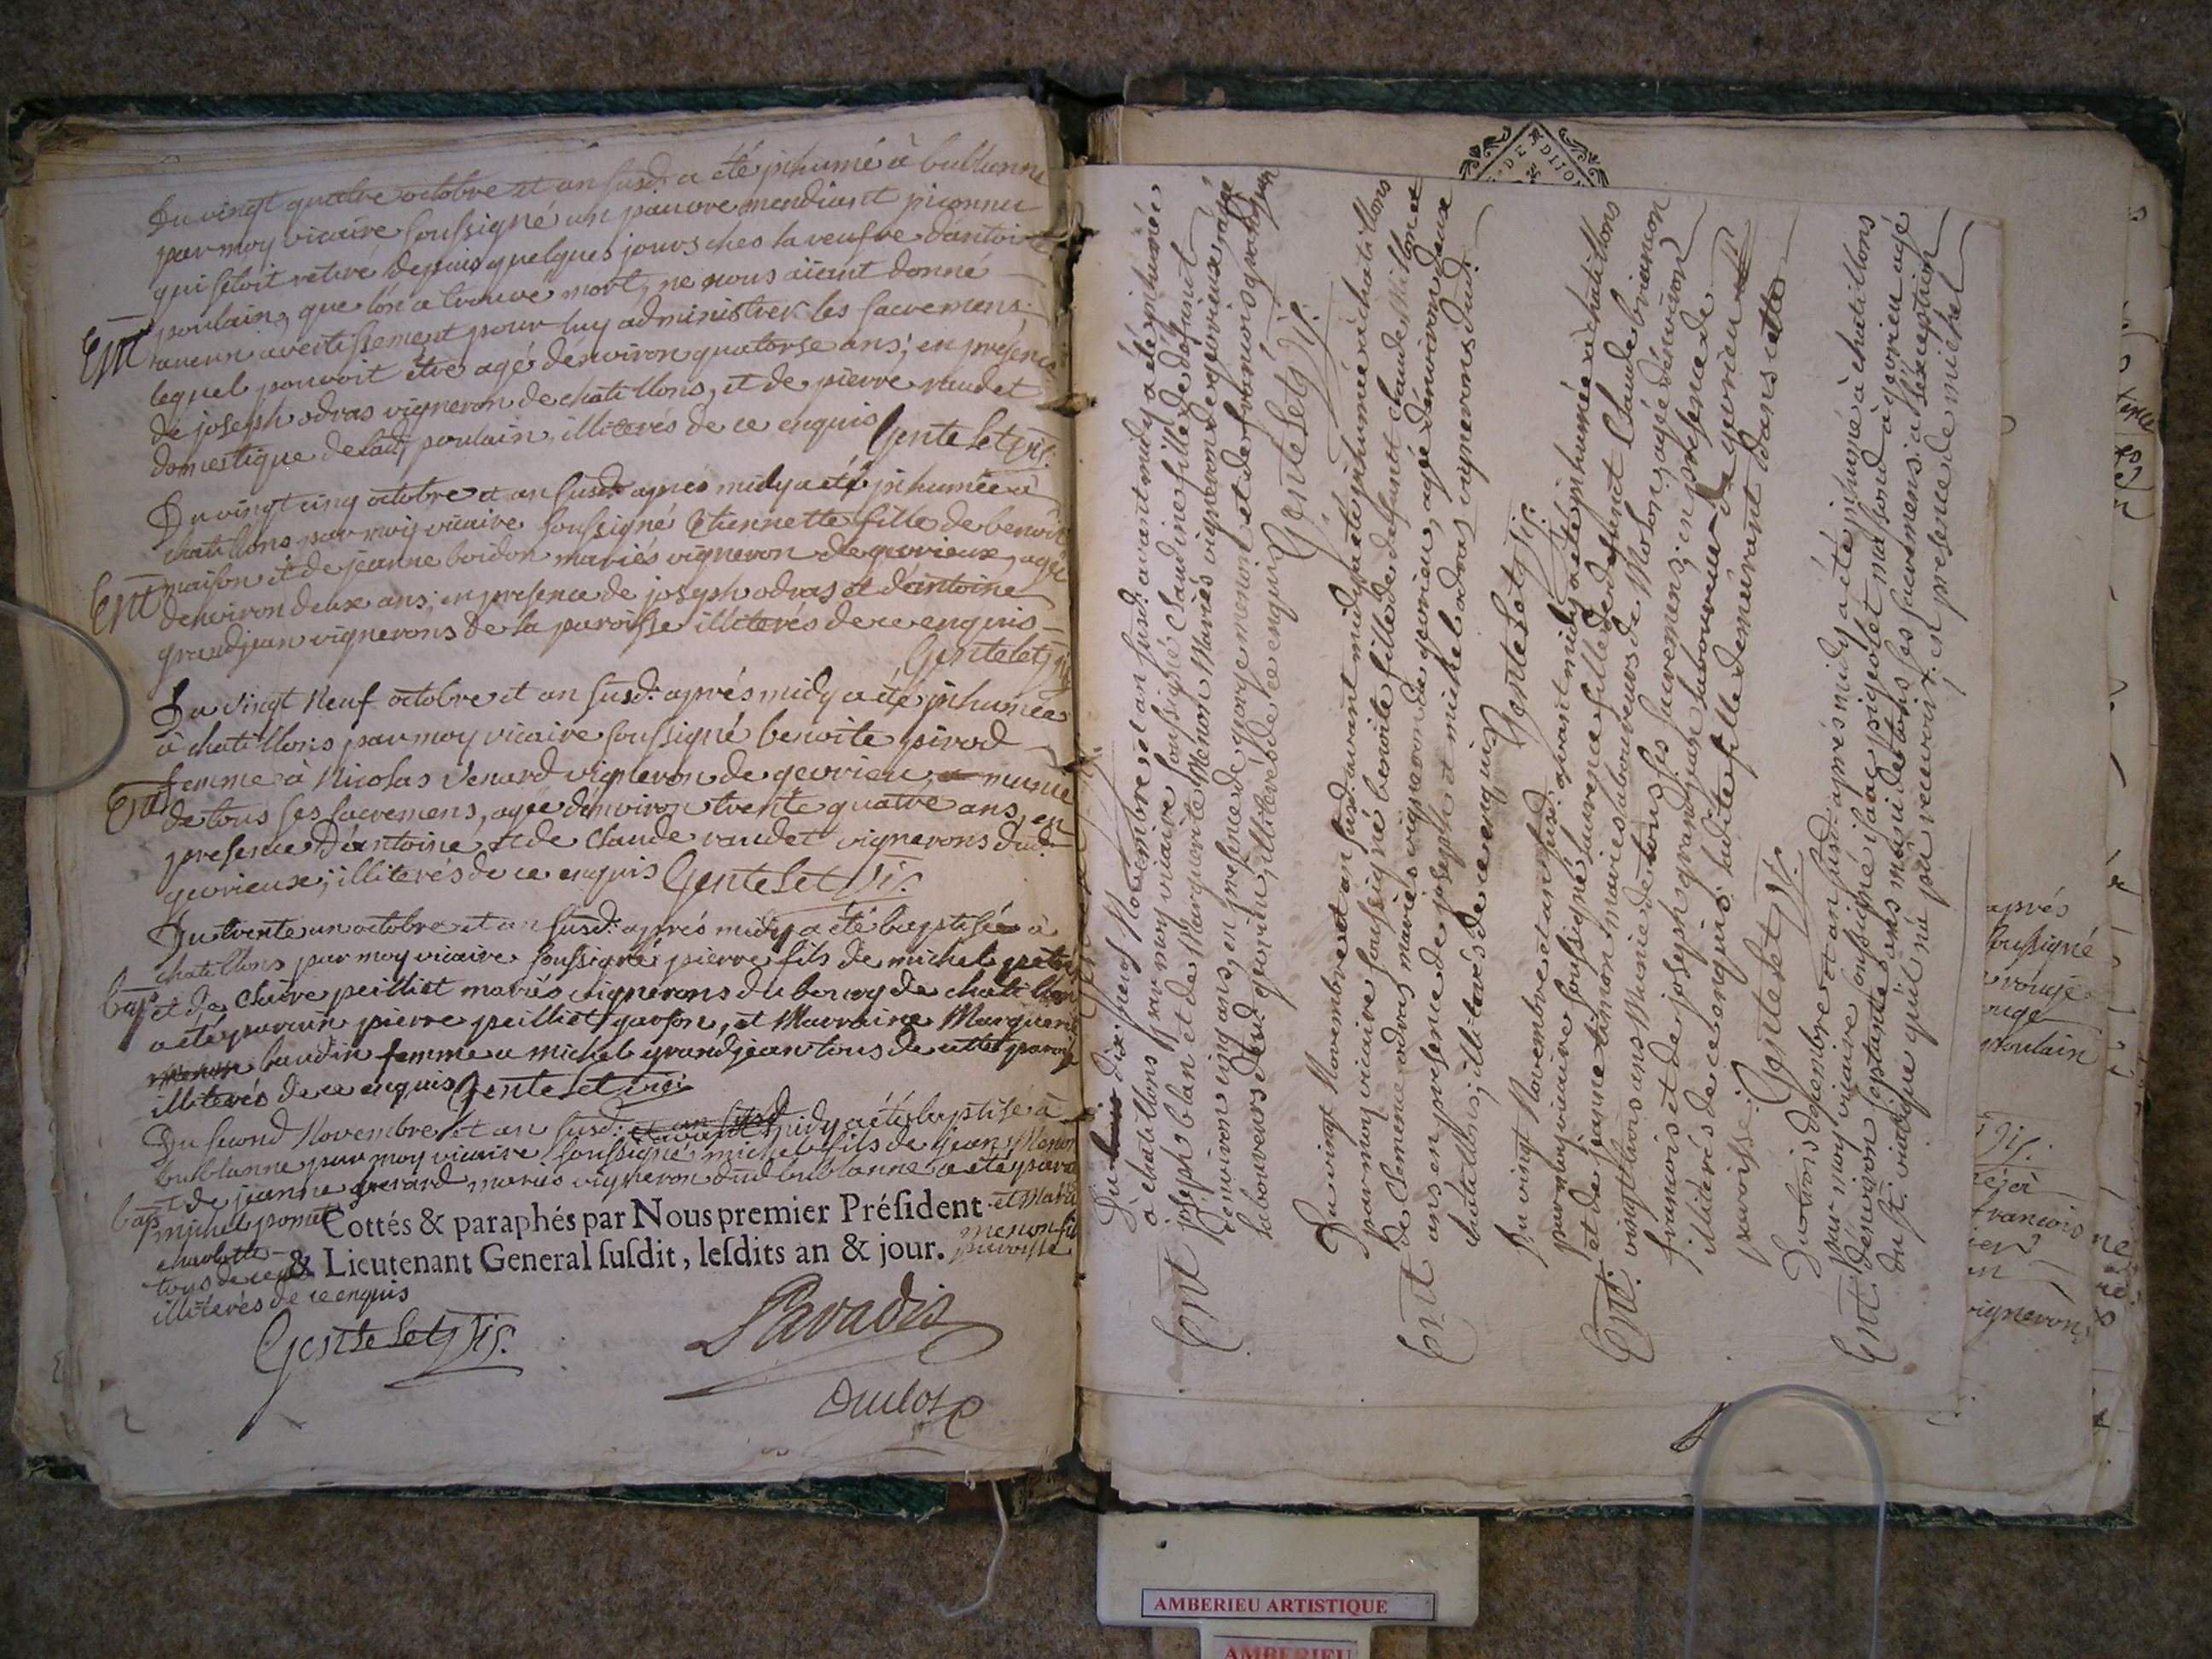 Du vingt quattre octobre et an susd. a été jnhumé à bublanne
par moy vicaire soussigné un pauvre mendiant jnconnu
qui setoit retiré depuis quelques jours ches la veufve d'antoine
poulain, que l'on a trouvé mort, ne nous aiant donné
Ent aucun avertissement pour luy administrer les sacremens;
lequel pouvoit être agé d'environ quatorse ans; en presence
de joseph odras vigneron de chatillons, et de pierre raudet
domestique de lad. poulain, illiterés de ce enquis Gentelet vic.
Du vingt cinq octobre et an susd. aprés midy a été jnhumée à
chatillons par moy vicaire soussigné Etiennette fille de benoit
Ent maison et de jeanne boidon mariés vigneron de gevrieux, agée
d'environ deux ans; en presence de joseph odras et d'antoine
grandjean vignerons de la paroisse illiterés de ce enquis
Gentelet vic.
Du vingt Neuf octobre et an susd. aprés midy a été jnhumée
à chatillons par moy vicaire soussigné benoite pirod
femme à Nicolas Venard vigneron de gevrieu, munie
Ent de tous ses sacremens, agée d'environ trente quatre ans, en
presence d'antoine et de Claude raudet vignerons dud.
gevrieux; illiterés de ce enquis Gentelet Vic.
Du trente un octobre et an susd. aprés midy a été baptisée à
chatillons par moy vicaire soussigné pierre fils de michel
bap. et de Claire peilliet mariés vignerons du bourg de chatillon
a été parrain pierre peilliet garson, et Marraine Marguerite
baudin femme a michel grandjean tous de cette paroisse
illiterés de ce enquis Gentelet vic.
Du second Novembre et an susd. midy a été baptisé à
bublanne par moy vicaire soussigné michel fils de jean Menon
et de jeanne gerard mariés vigneron dud. bublanne a été para
bap. michel ponet et Mara
Cottés & paraphés par Nous premier Préſident
charlotte menon
& Lieutenant General ſuſdit, leſdits an & jour.
tous de paroisse
illiterés de ce enquis
Gentelet Vic.
Duclos
Du dix neuf Novembre et an susd. avant midy a été jnhumée
à chatillons par moy vicaire soussigné Claudine fille de défunt
joseph blan et de Marguerite Menon Mariés vigneron de gevrieux, agée
Ent d'environ cinq ans, en presence de george menon et de françois grandjean
laboureurs dud. gevrieu, illiterés de ce enquis
Gentelet Vic.
Du vingt Novembre et an susd. avant midy a été jnhumée à chatillons
par moy vicaire soussigné benoite fille de defunt claude Millon et
de Clemence odras mariés vigneron de gevrieu, agée d'environ deux
Ent ans en presence de joseph et michel odras vignerons dud.
chatillons; illiterés de ce enquis Gentelet Vic.
Du vingt Novembre et an susd. avant midy a été jnhumée à chatillons
par moy vicaire soussigné laurence fille de defunt Claude briannon
et de jeanne mariés laboureurs de Molon, agée d'environ
Ent. vingt trois ans Munie de tous ses sacremens; en presence de
françois et de joseph grandjean laboureur de gevrieu
illiterés de ce enquis. ladite fille demeurant dans cette
paroisse. Gentelet Vic.
Du trois dexembre et an susd. aprés midy a été jnhumé à chatillons
par moy vicaire soussigné isaac pigeolet masson à gevrieu agé
Ent. d'environ septante ans muni de tous ses sacremens à l'exception
du st. viatique qu'il n'a pû recevoir. en presence de michel
aprés
soussigné
rouge
poulain
Vic.
françois
vignerons
AMBERIEU ARTISTIQUE
AMBERIEU